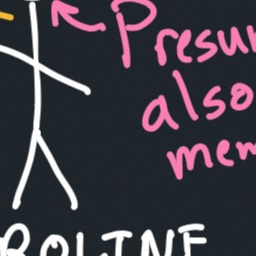 Presu
also
mem
ROLINE